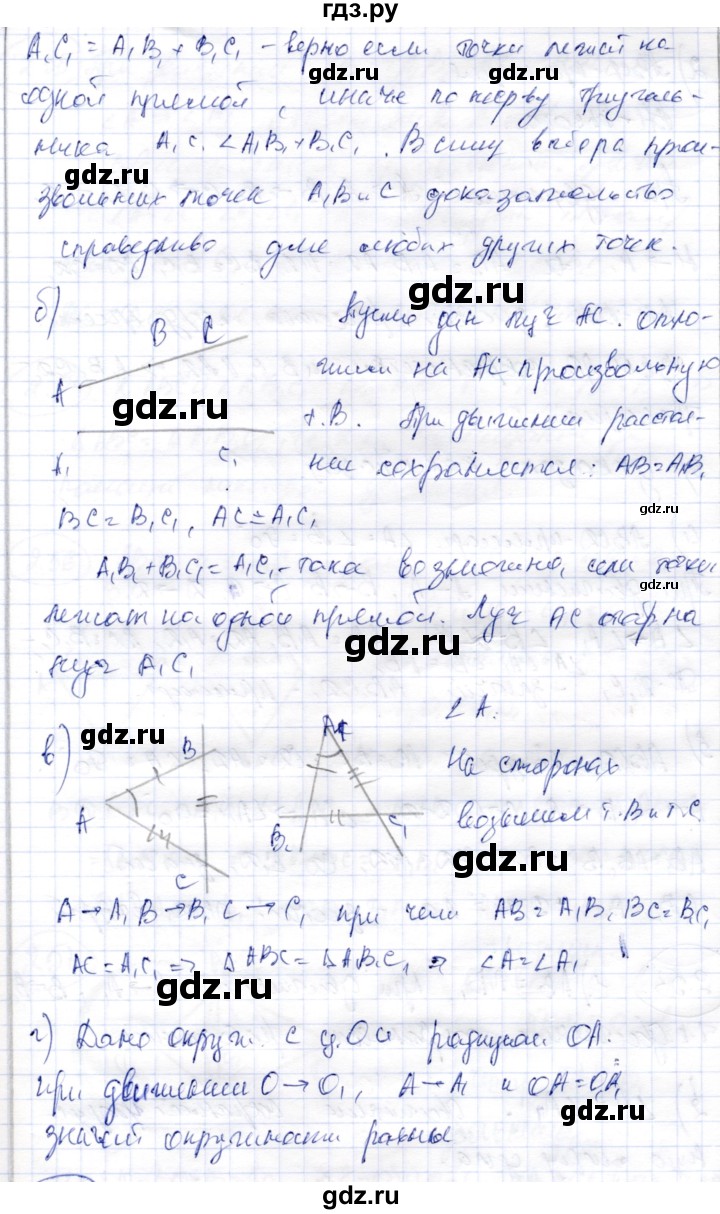 гдз.ру
A₁C₁ = A₁B₁ + B₁C₁ - верно если точки лежат на
одной прямой, иначе по нерву треуголь-
ника A₁C₁ < A₁B₁ + B₁C₁. В силу выбора прои-
gdz.ru
gdz.ru
звольных точек A, B и C доказательство
справедливо для любых других точек.
gdz.ru
б)
B C
Пусть дан луч AC. опро-
A
gdz.ru
чили на AC произвольную
gdz.ru
т. B. При движении расстоя-
A₁ C₁
ние сохраняется: AB = A₁B₁
gdz.ru
BC = B₁C₁, AC = A₁C₁
gdz.ru
A₁B₁ + B₁C₁ = A₁C₁ - така возможно, если точки
gdz.ru
лежат на одной прямой. Луч AC отобр на
gdz.ru
луч A₁C₁
в)
gdz.ru
A B C
A₁ B₁ C₁
∠A.
На сторонах
возьмем т. B и т. C
gdz.ru
A → A₁ B → B₁ C → C₁ при чем AB = A₁B₁ BC = B₁C₁
gdz.ru
AC = A₁C₁ => ΔABC = ΔA₁B₁C₁ => ∠A = ∠A₁
gdz.ru
г) Дано окруж. с ц. O и радиусом OA.
при движении O → O₁, A → A₁ и OA = O₁A₁
gdz.ru
значит окружности равны
gdz.ru
gdz.ru